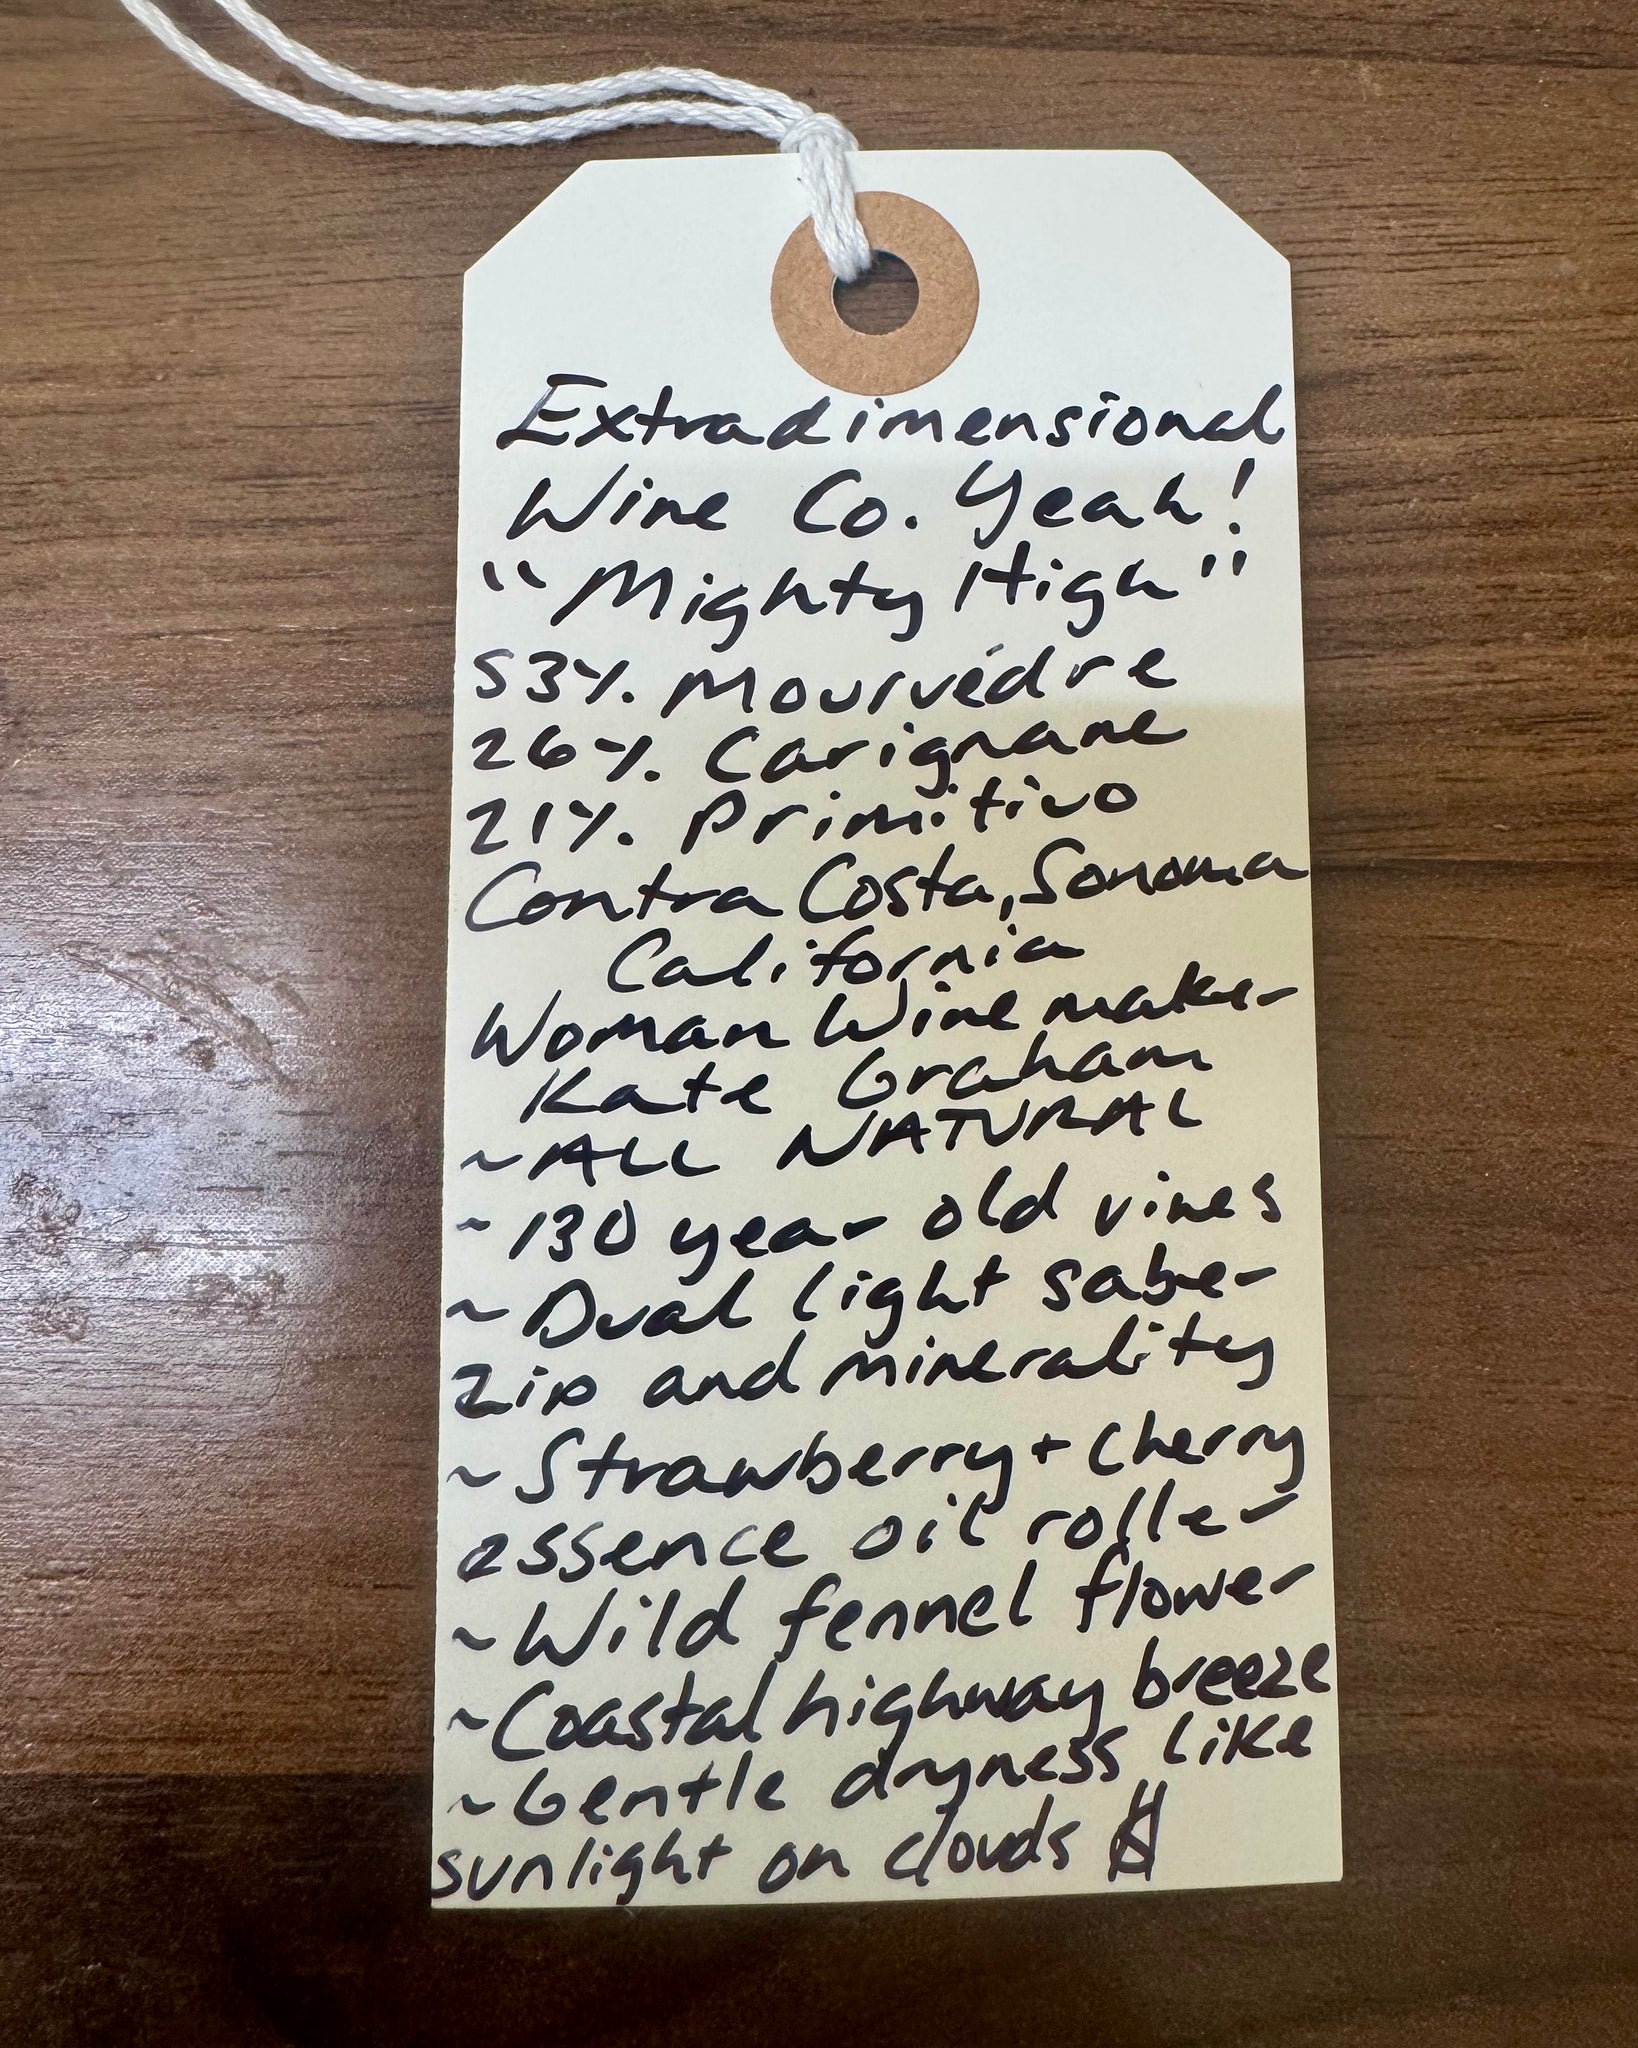 Extradimensional
Wine Co. Yeah!
"Mighty High"
53% Mourvédre
26% Carignane
21% Primitivo
Contra Costa, Sonoma
California
Woman Winemaker
Kate Graham
~ALL NATURAL
~130 year old vines
~Dual light saber
zip and minerality
~Strawberry + cherry
essence oil roller
~Wild fennel flower
~Coastal highway breeze
~Gentle dryness like
sunlight on clouds